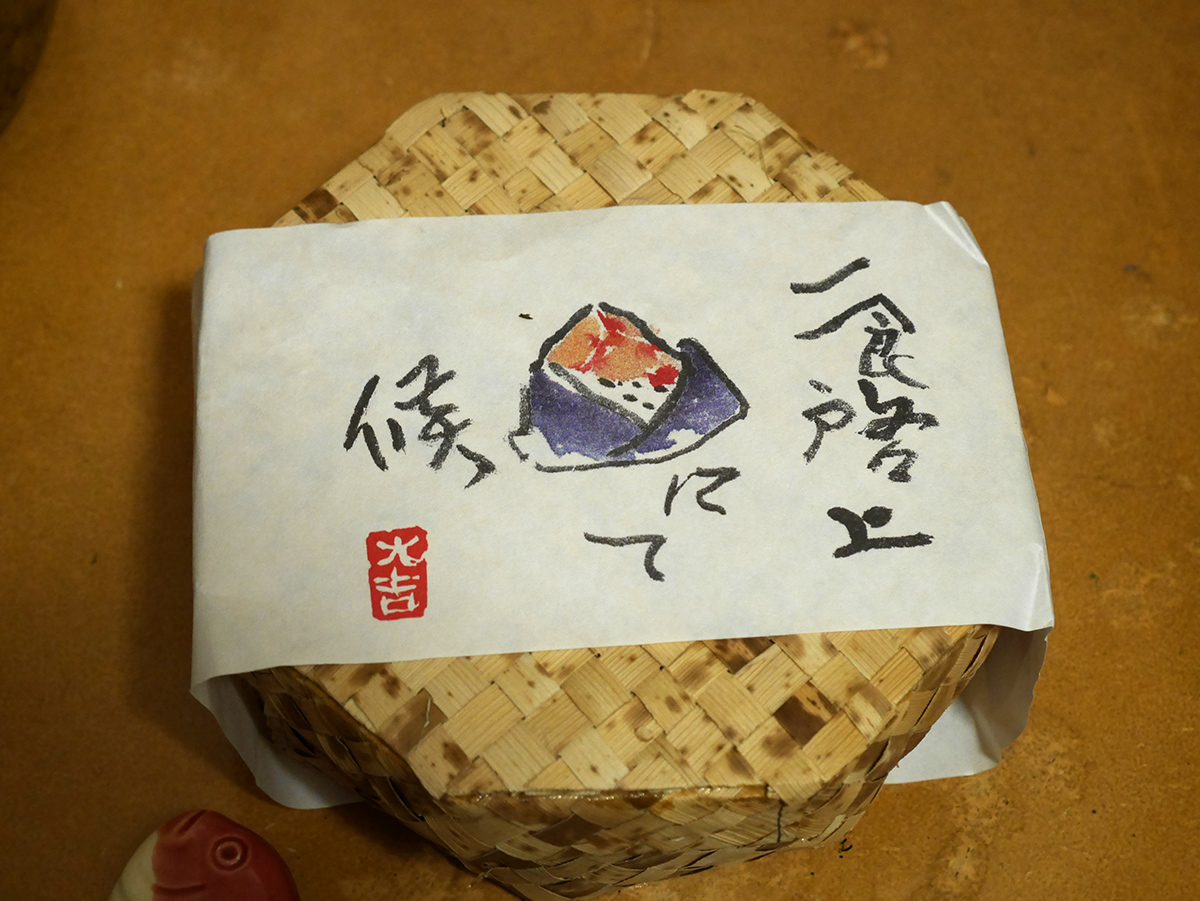 一食啓上
にて
候
大吉